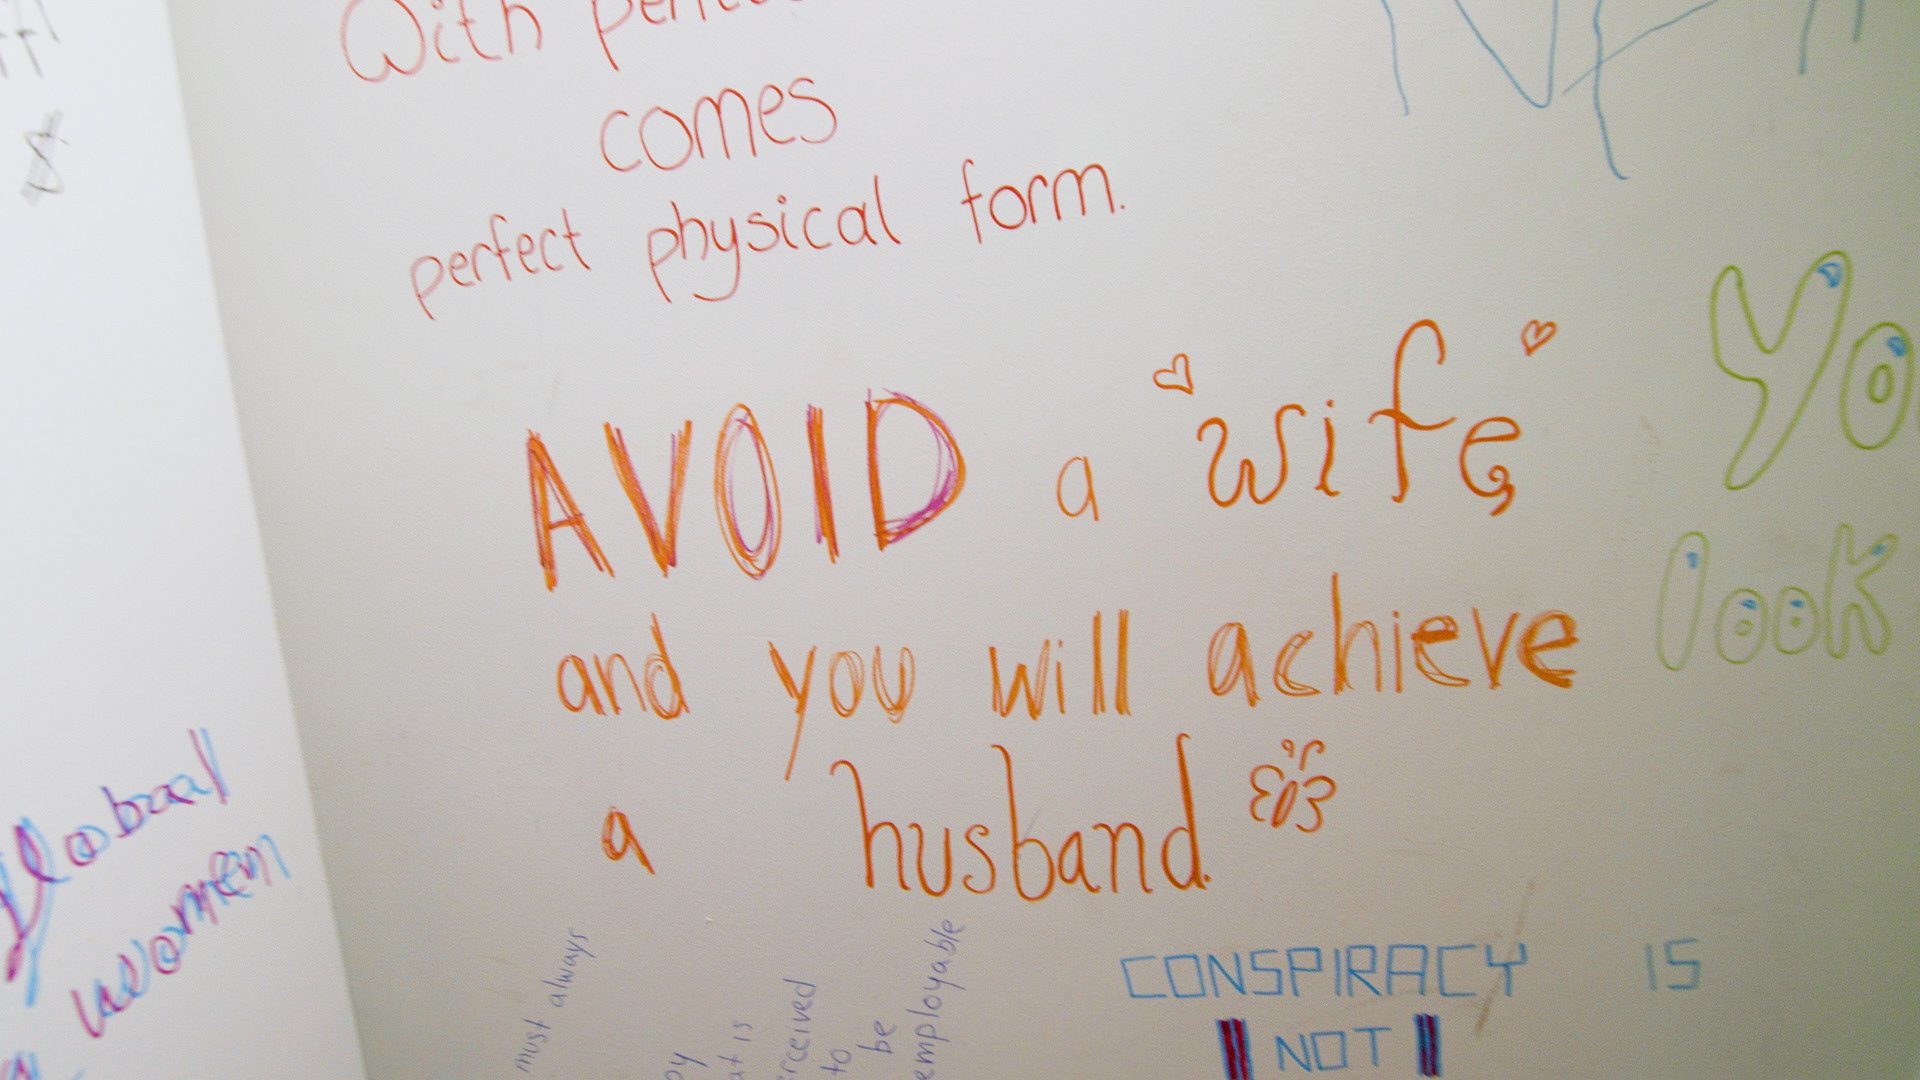 With
comes
perfect physical form.
AVOID a wife
and you will achieve
a husband.
look
global
women
must always
to
be
employable
CONSPIRACY IS
NOT